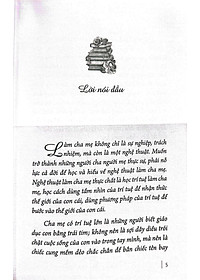 Lời nói đầu
Làm cha mẹ không chỉ là sự nghiệp, trách
nhiệm, mà còn là một nghệ thuật. Muốn
trở thành những người cha mẹ thực sự, phải nỗ
lực cả đời để học và hiểu về nghệ thuật làm cha mẹ.
Nghệ thuật làm cha mẹ thực chất là học trí tuệ làm cha
mẹ, học cách dùng tầm nhìn của trí tuệ để nhận thức
thế giới của con cái, dùng phương pháp của trí tuệ để
bước vào thế giới của con cái.
Cha mẹ có trí tuệ lớn là những người biết giáo
dục con bằng trái tim; không là sợi dây diều trói
chặt cuộc sống của con vào trong tay mình, mà nên là
chiếc cung mềm dẻo chắc chắn để bắn chiếc tên bay
5